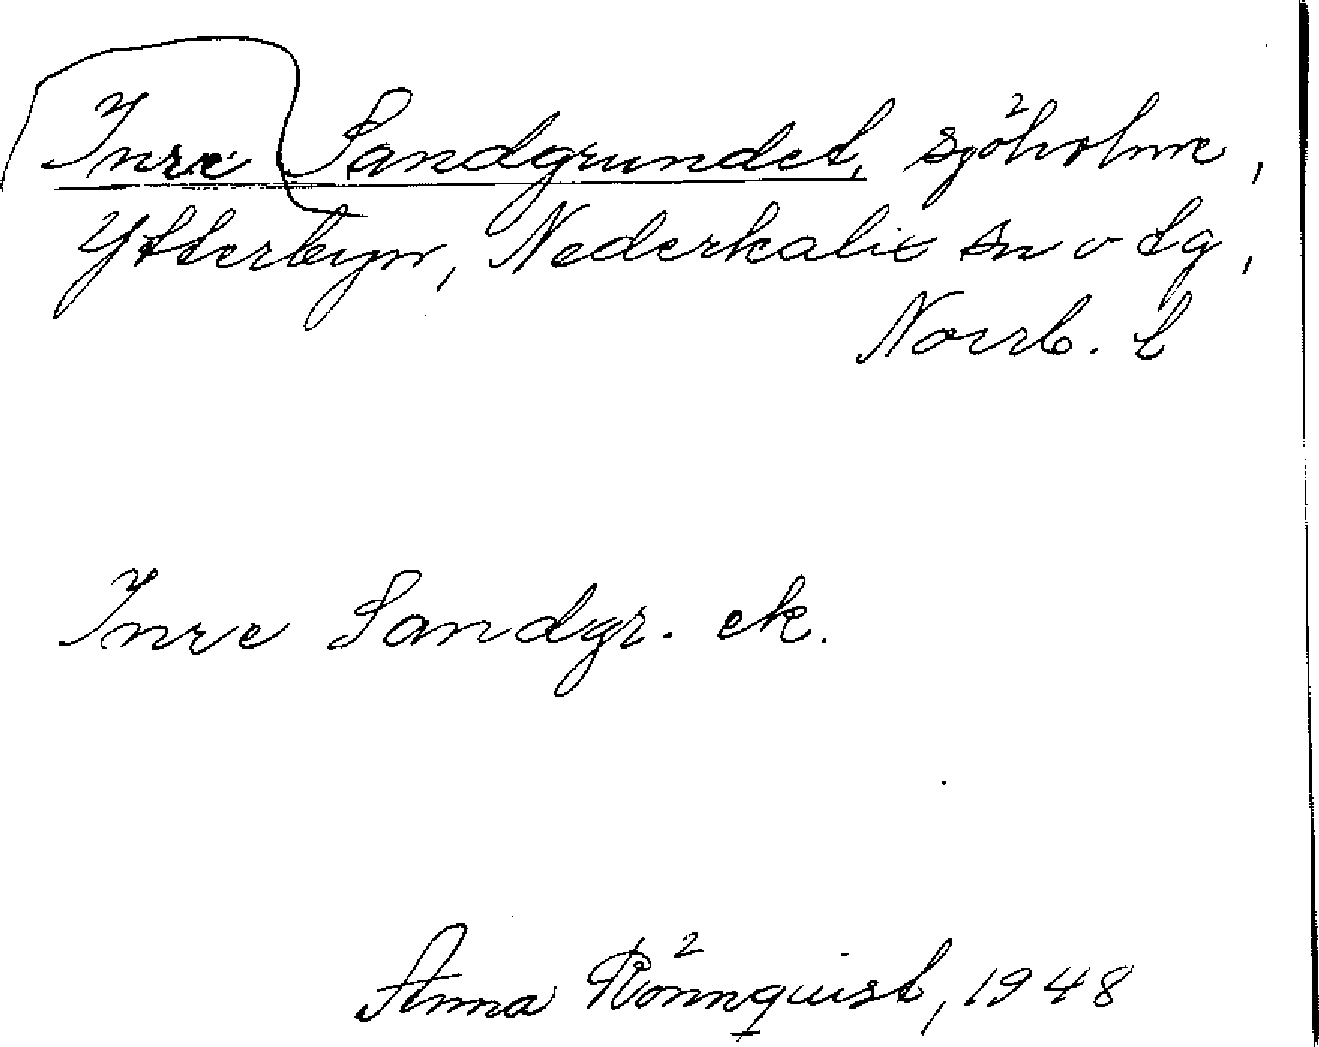 Inre Sandgrundet, sjöholme,
Ytterbyn, Nederkalix sn o tg,
Norrb. l
Inre Sandgr. ek.
Anna Rönnquist, 1948